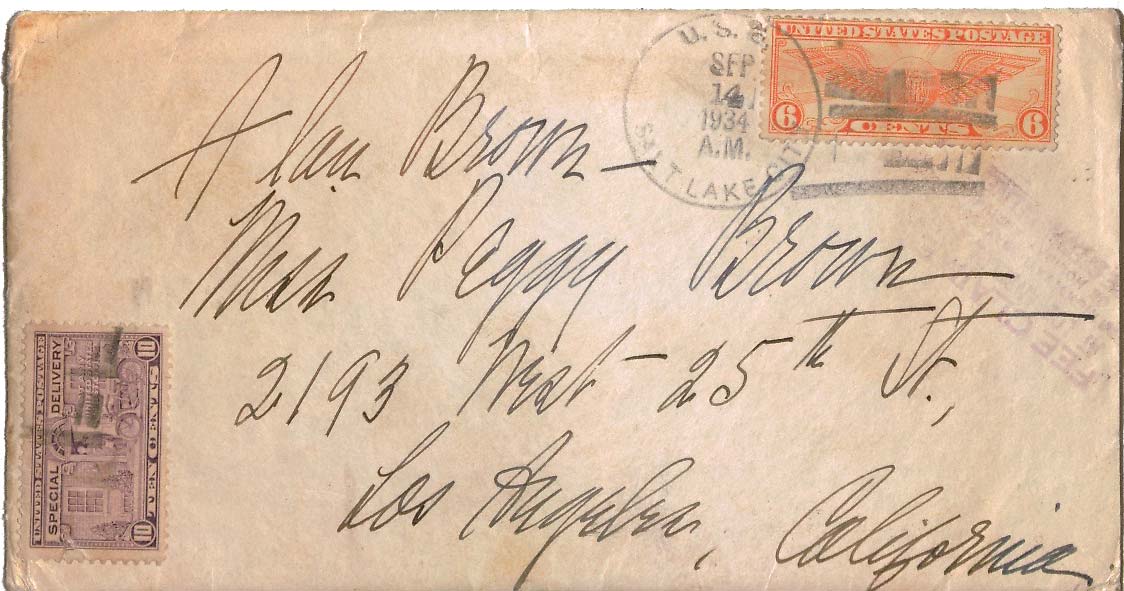 U.S.
SEP
14
1934
A.M.
SALT LAKE CITY
UNITED STATES POSTAGE
6 CENTS 6
Alan Brown—
Miss Peggy Brown
2193 West-25th St.,
Los Angeles, California
UNITED STATES POSTAGE
SPECIAL DELIVERY
10 TEN CENTS 10
FEE CLAIMED